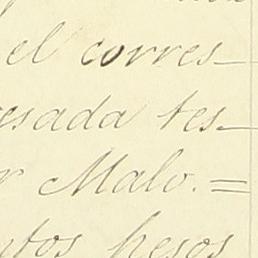 el corres-
esada tes-
r Malo.=
ntos pesos